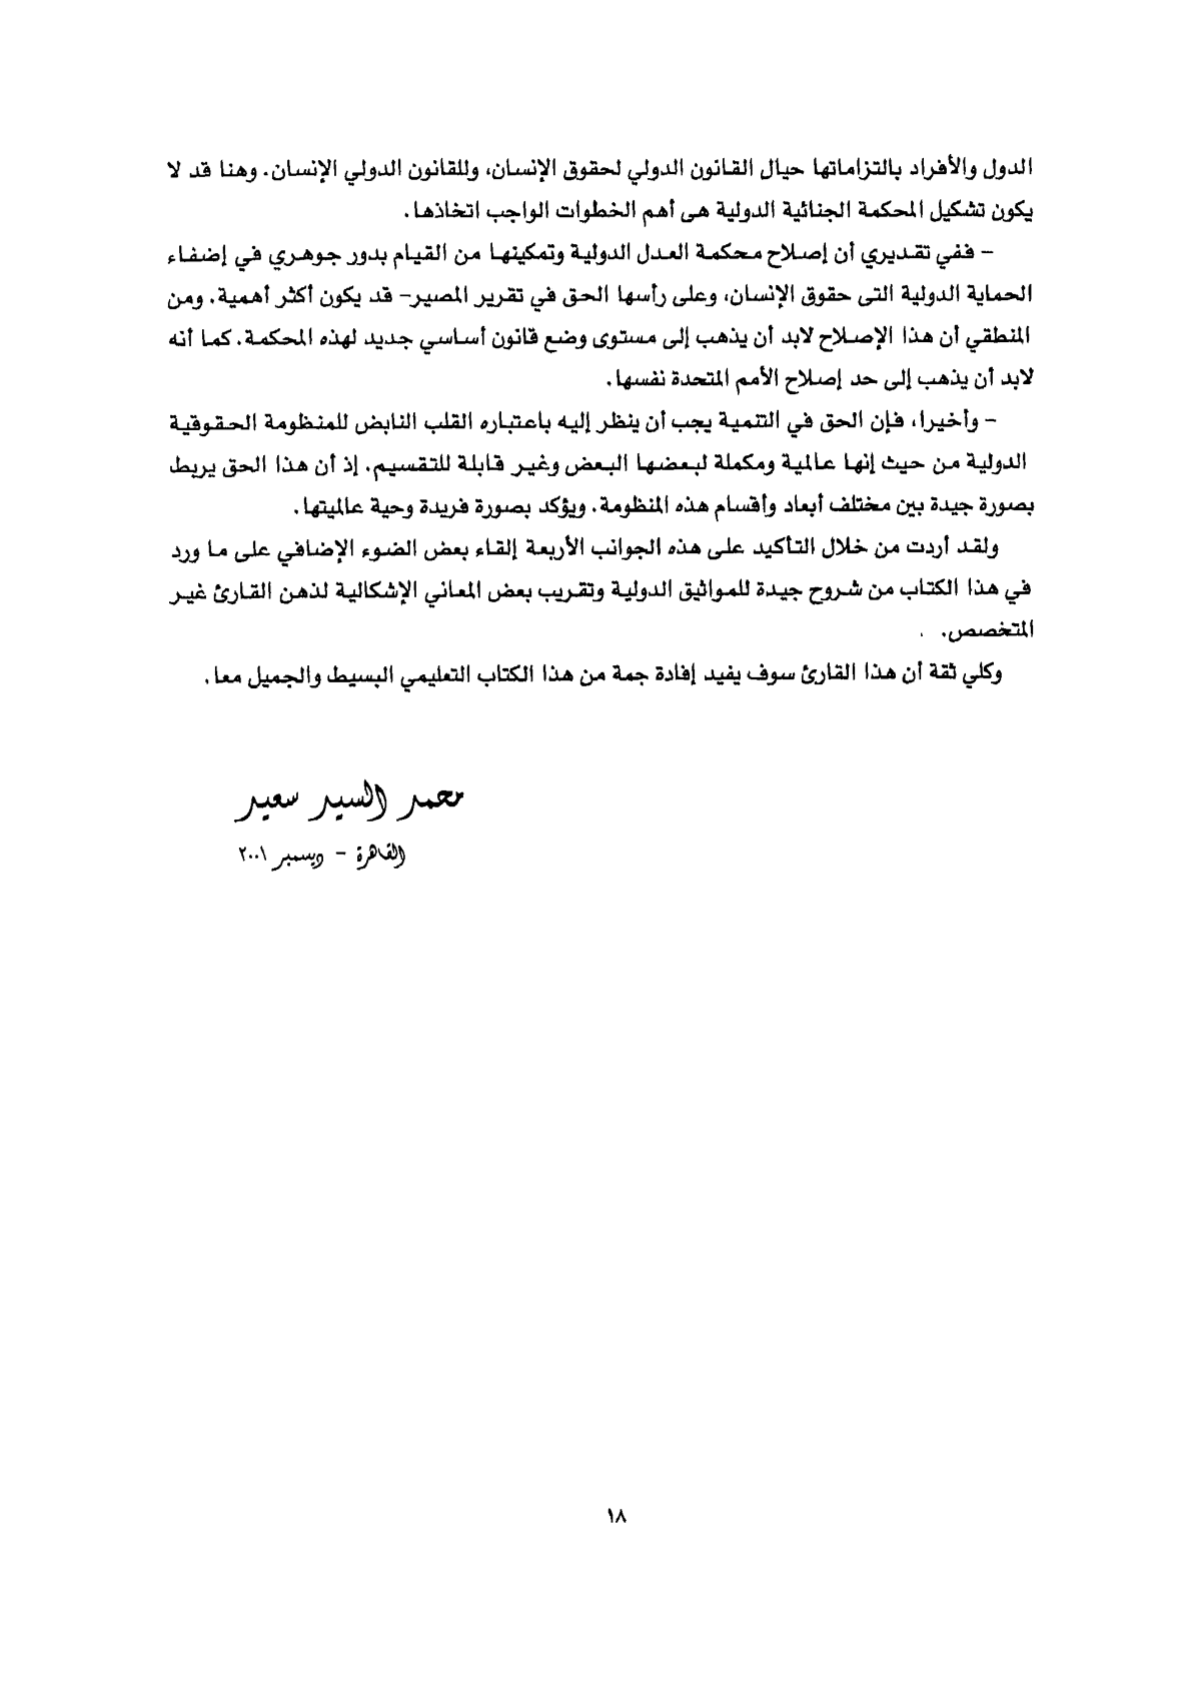 الدول والأفراد بالتزاماتها حيال القانون الدولي لحقوق الإنسان، وللقانون الدولي الإنسان. وهنا قد لا
يكون تشكيل المحكمة الجنائية الدولية هى أهم الخطوات الواجب اتخاذها.
– ففي تقديري أن إصلاح محكمة العدل الدولية وتمكينها من القيام بدور جوهري في إضفاء
الحماية الدولية التى حقوق الإنسان، وعلى رأسها الحق في تقرير المصير– قد يكون أكثر أهمية. ومن
المنطقي أن هذا الإصلاح لابد أن يذهب إلى مستوى وضع قانون أساسي جديد لهذه المحكمة. كما أنه
لابد أن يذهب إلى حد إصلاح الأمم المتحدة نفسها.
– وأخيرا، فإن الحق في التنمية يجب أن ينظر إليه باعتباره القلب النابض للمنظومة الحقوقية
الدولية من حيث إنها عالمية ومكملة لبعضها البعض وغير قابلة للتقسيم. إذ أن هذا الحق يربط
بصورة جيدة بين مختلف أبعاد وأقسام هذه المنظومة. ويؤكد بصورة فريدة وحية عالميتها.
ولقد أردت من خلال التأكيد على هذه الجوانب الأربعة إلقاء بعض الضوء الإضافي على ما ورد
في هذا الكتاب من شروح جيدة للمواثيق الدولية وتقريب بعض المعاني الإشكالية لذهن القارئ غير
المتخصص.
وكلي ثقة أن هذا القارئ سوف يفيد إفادة جمة من هذا الكتاب التعليمي البسيط والجميل معا.
محمد السيد سعيد
القاهرة – ديسمبر ٢٠٠١
١٨